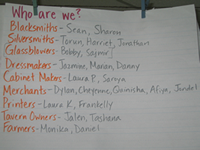 Who are we?
Blacksmiths - Sean, Sharon
Silversmiths - Torun, Harriet, Jonathan
Glassblowers - Bobby,
Dressmakers - Jazmine, Manan, Donny
Cabinet Makers - Laura P.,
Merchants - Dylan, Cheyenne, Quinisha, Afiya,
Printers - Laura K., Frankelly
Tavern Owners - Jalen, Tashana
Farmers - Monika, Daniel